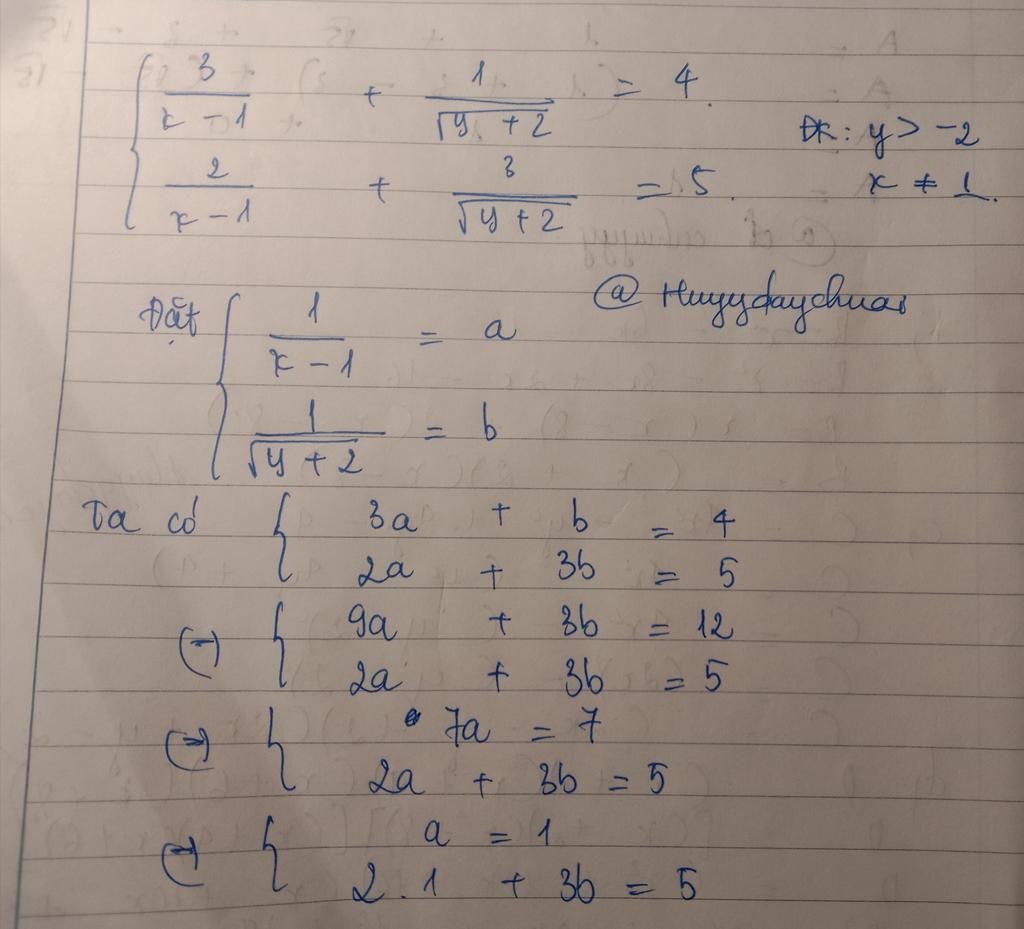 3/(x - 1) + 1/√(y + 2) = 4.
2/(x - 1) + 3/√(y + 2) = 5.
ĐK: y > -2
x ≠ 1.
Đặt 1/(x - 1) = a
1/√(y + 2) = b
Ta có 3a + b = 4
2a + 3b = 5
(=) 9a + 3b = 12
2a + 3b = 5
(=) 7a = 7
2a + 3b = 5
(=) a = 1
2 . 1 + 3b = 5